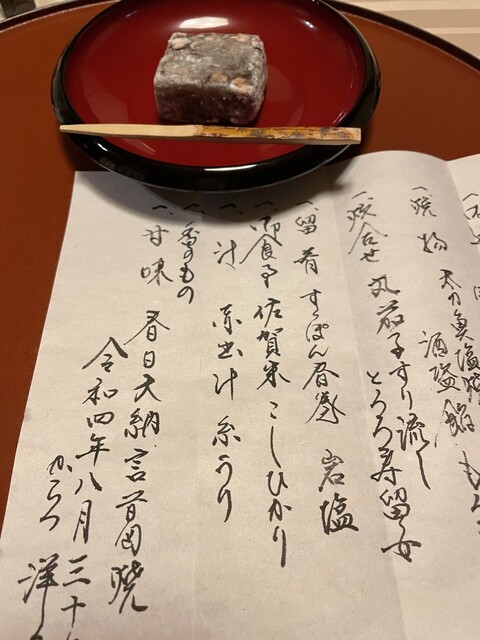 一、焼物 太刀魚塩焼
一、炊合せ 丸茄子すり流し
とろろ
一、留肴 すっぽん春巻 岩塩
一、御食事 佐賀米こしひかり
一、汁 赤出汁 糸うり
一、香のもの
一、甘味 春日大納言 暁
令和四年八月三十
からつ 洋